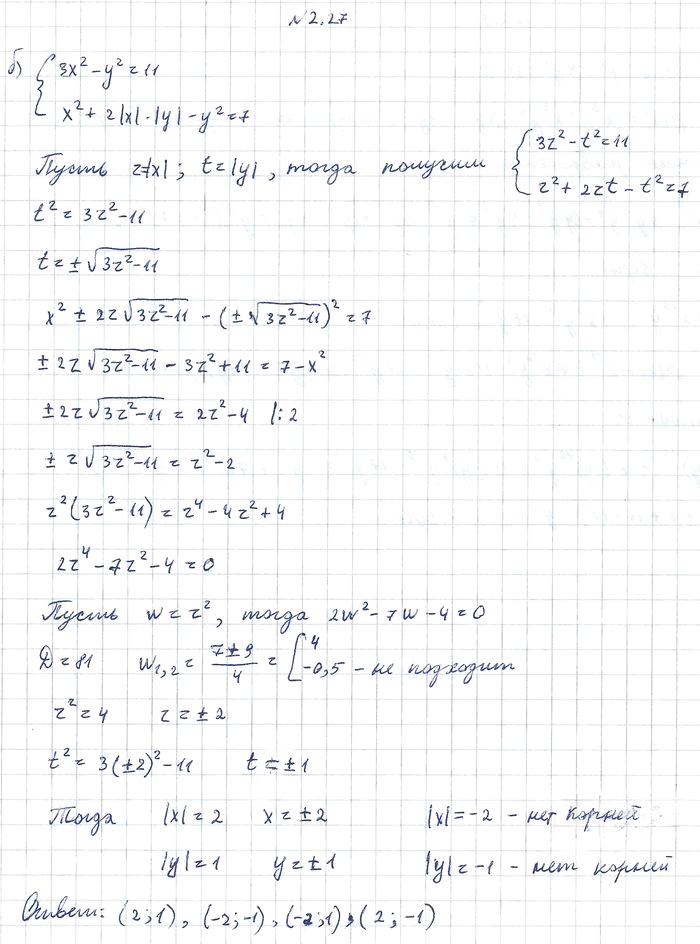 № 2.27
б) { 3x² – y² = 11
x² + 2|x|·|y| – y² = 7
Пусть z=|x|; t=|y|, тогда получим { 3z² – t² = 11
z² + 2zt – t² = 7
t² = 3z² – 11
t = ± √(3z² – 11)
x² ± 2z √(3z² – 11) – (± √(3z² – 11))² = 7
± 2z √(3z² – 11) – 3z² + 11 = 7 – x²
± 2z √(3z² – 11) = 2z² – 4 |: 2
± z √(3z² – 11) = z² – 2
z² (3z² – 11) = z⁴ – 4z² + 4
2z⁴ – 7z² – 4 = 0
Пусть w = z², тогда 2w² – 7w – 4 = 0
D = 81 w₁,₂ = (7 ± 9)/4 = [ 4
–0,5 – не подходит
z² = 4 z = ± 2
t² = 3(±2)² – 11 t = ± 1
Тогда |x| = 2 x = ± 2 |x| = –2 – нет корней
|y| = 1 y = ± 1 |y| = –1 – нет корней
Ответ: (2; 1), (–2; –1), (–2; 1), (2; –1)